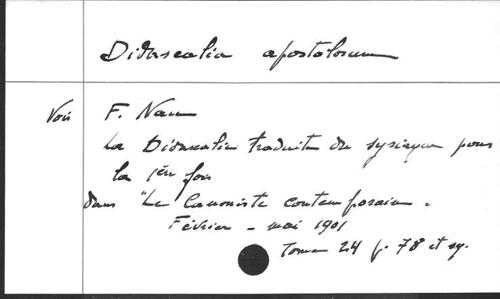 Didascalia apostolorum
Voir F. Nau
La Didascalie traduite du syriaque pour
la 1ère fois
dans "Le Canoniste contemporain.
Février - mai 1901
Tome 24 p. 78 et sq.